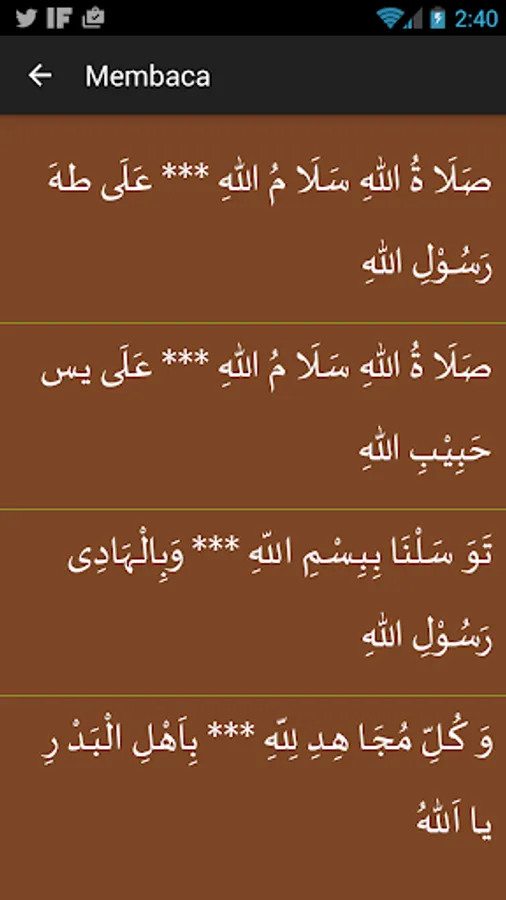 IF 2:40
Membaca
صَلَا ةُ اللهِ سَلَا مُ اللهِ *** عَلَى طهَ
رَسُوْلِ اللهِ
صَلَا ةُ اللهِ سَلَا مُ اللهِ *** عَلَى يس
حَبِيْبِ اللهِ
تَوَ سَلْنَا بِبِسْمِ اللّهِ *** وَبِالْهَادِى
رَسُوْلِ اللهِ
وَ كُلِّ مُجَا هِدِ لِلّهِ *** بِاَهْلِ الْبَدْ رِ
يا اَللهُ